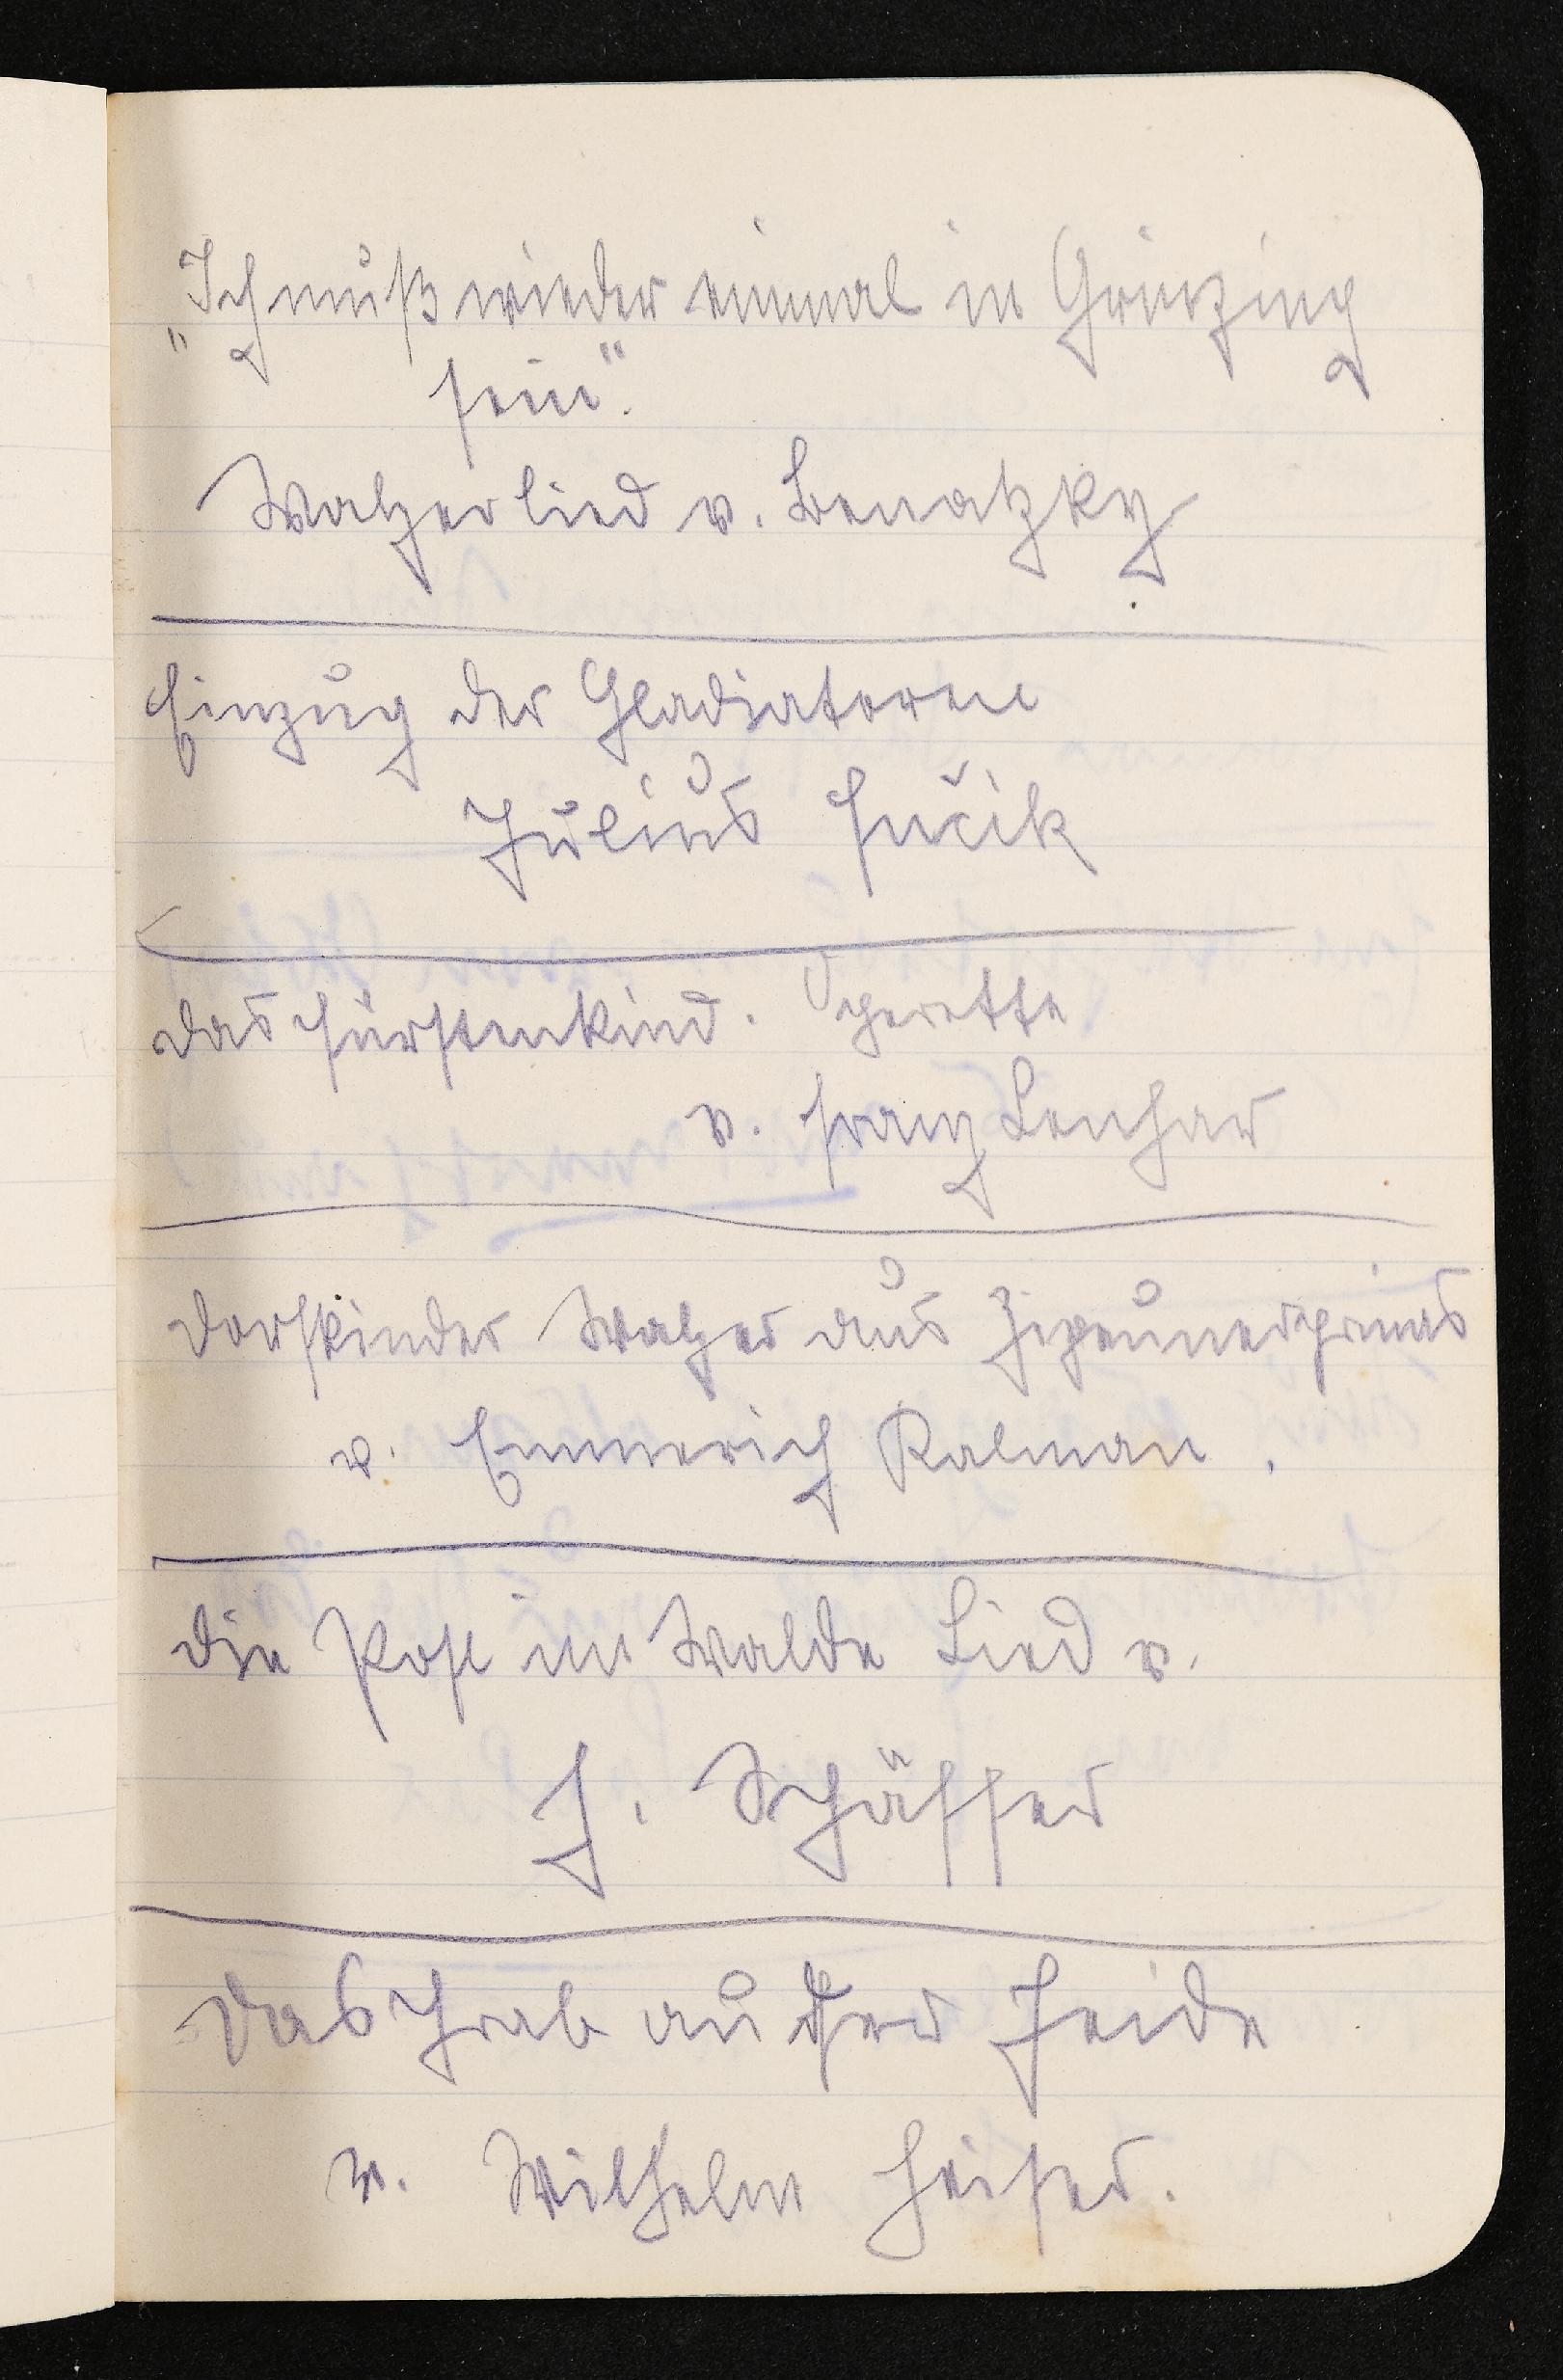 „Ich muß wieder einmal in Grinzing
sein".
Walzerlied v. Benatzky
Einzug der Gladiatoren
Julius Fučik
Das Fürstenkind. Operette
v. Franz Lenhar
Dorfkinder Walzer aus Zigeunerprimas
v. Emmerich Kalman.
Die Post im Walde Lied v.
H. Schäffer
Das Grab auf der Heide
v. Wilhelm Heiser.